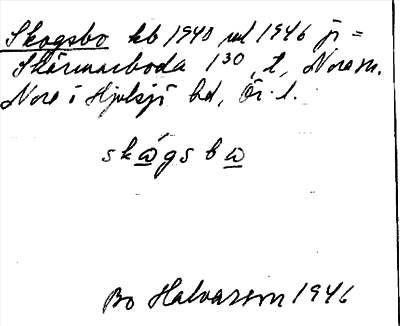 Skogsbo kb 1940 ml 1946 ji =
Skärmarboda 1³⁰, t, Nora sn.
Nora i Hjulsjö hd, Ör. l.
skågsba
Bo Halvarsson 1946